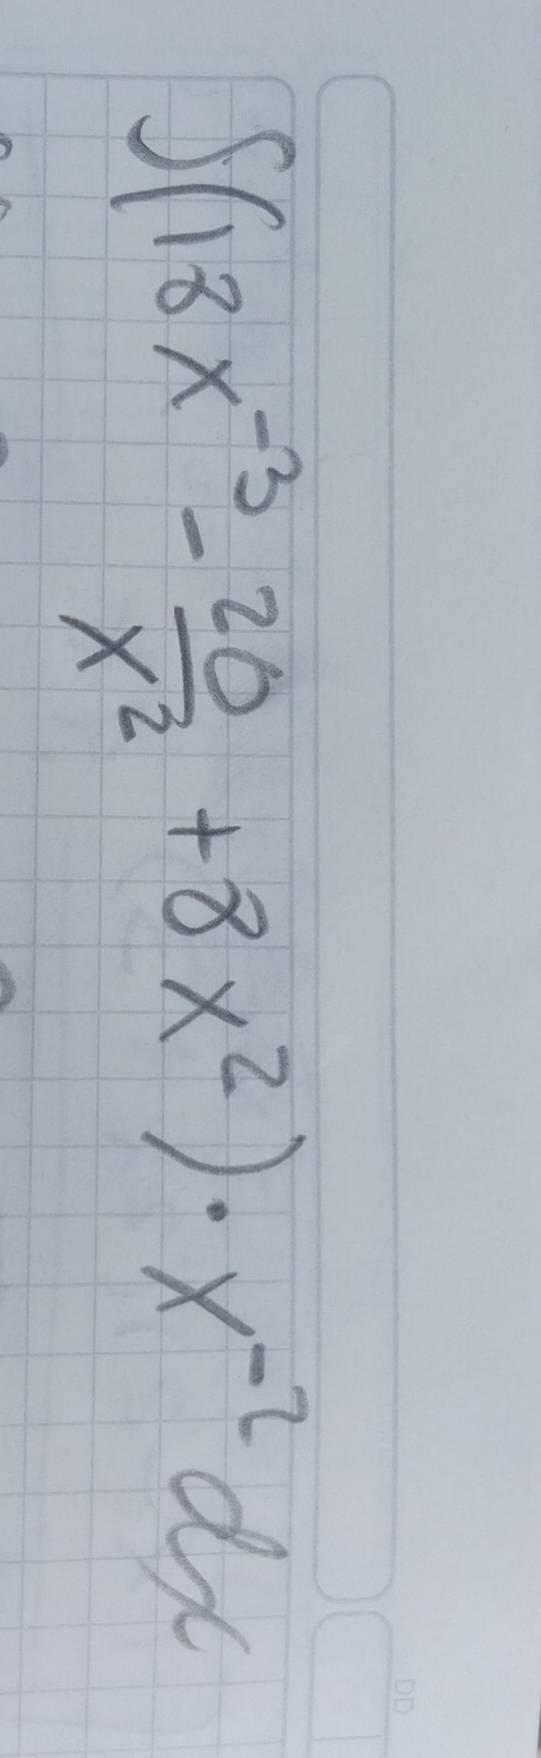 ∫(18x⁻³ - 26/x² + 8x²) · x⁻² dx
DD